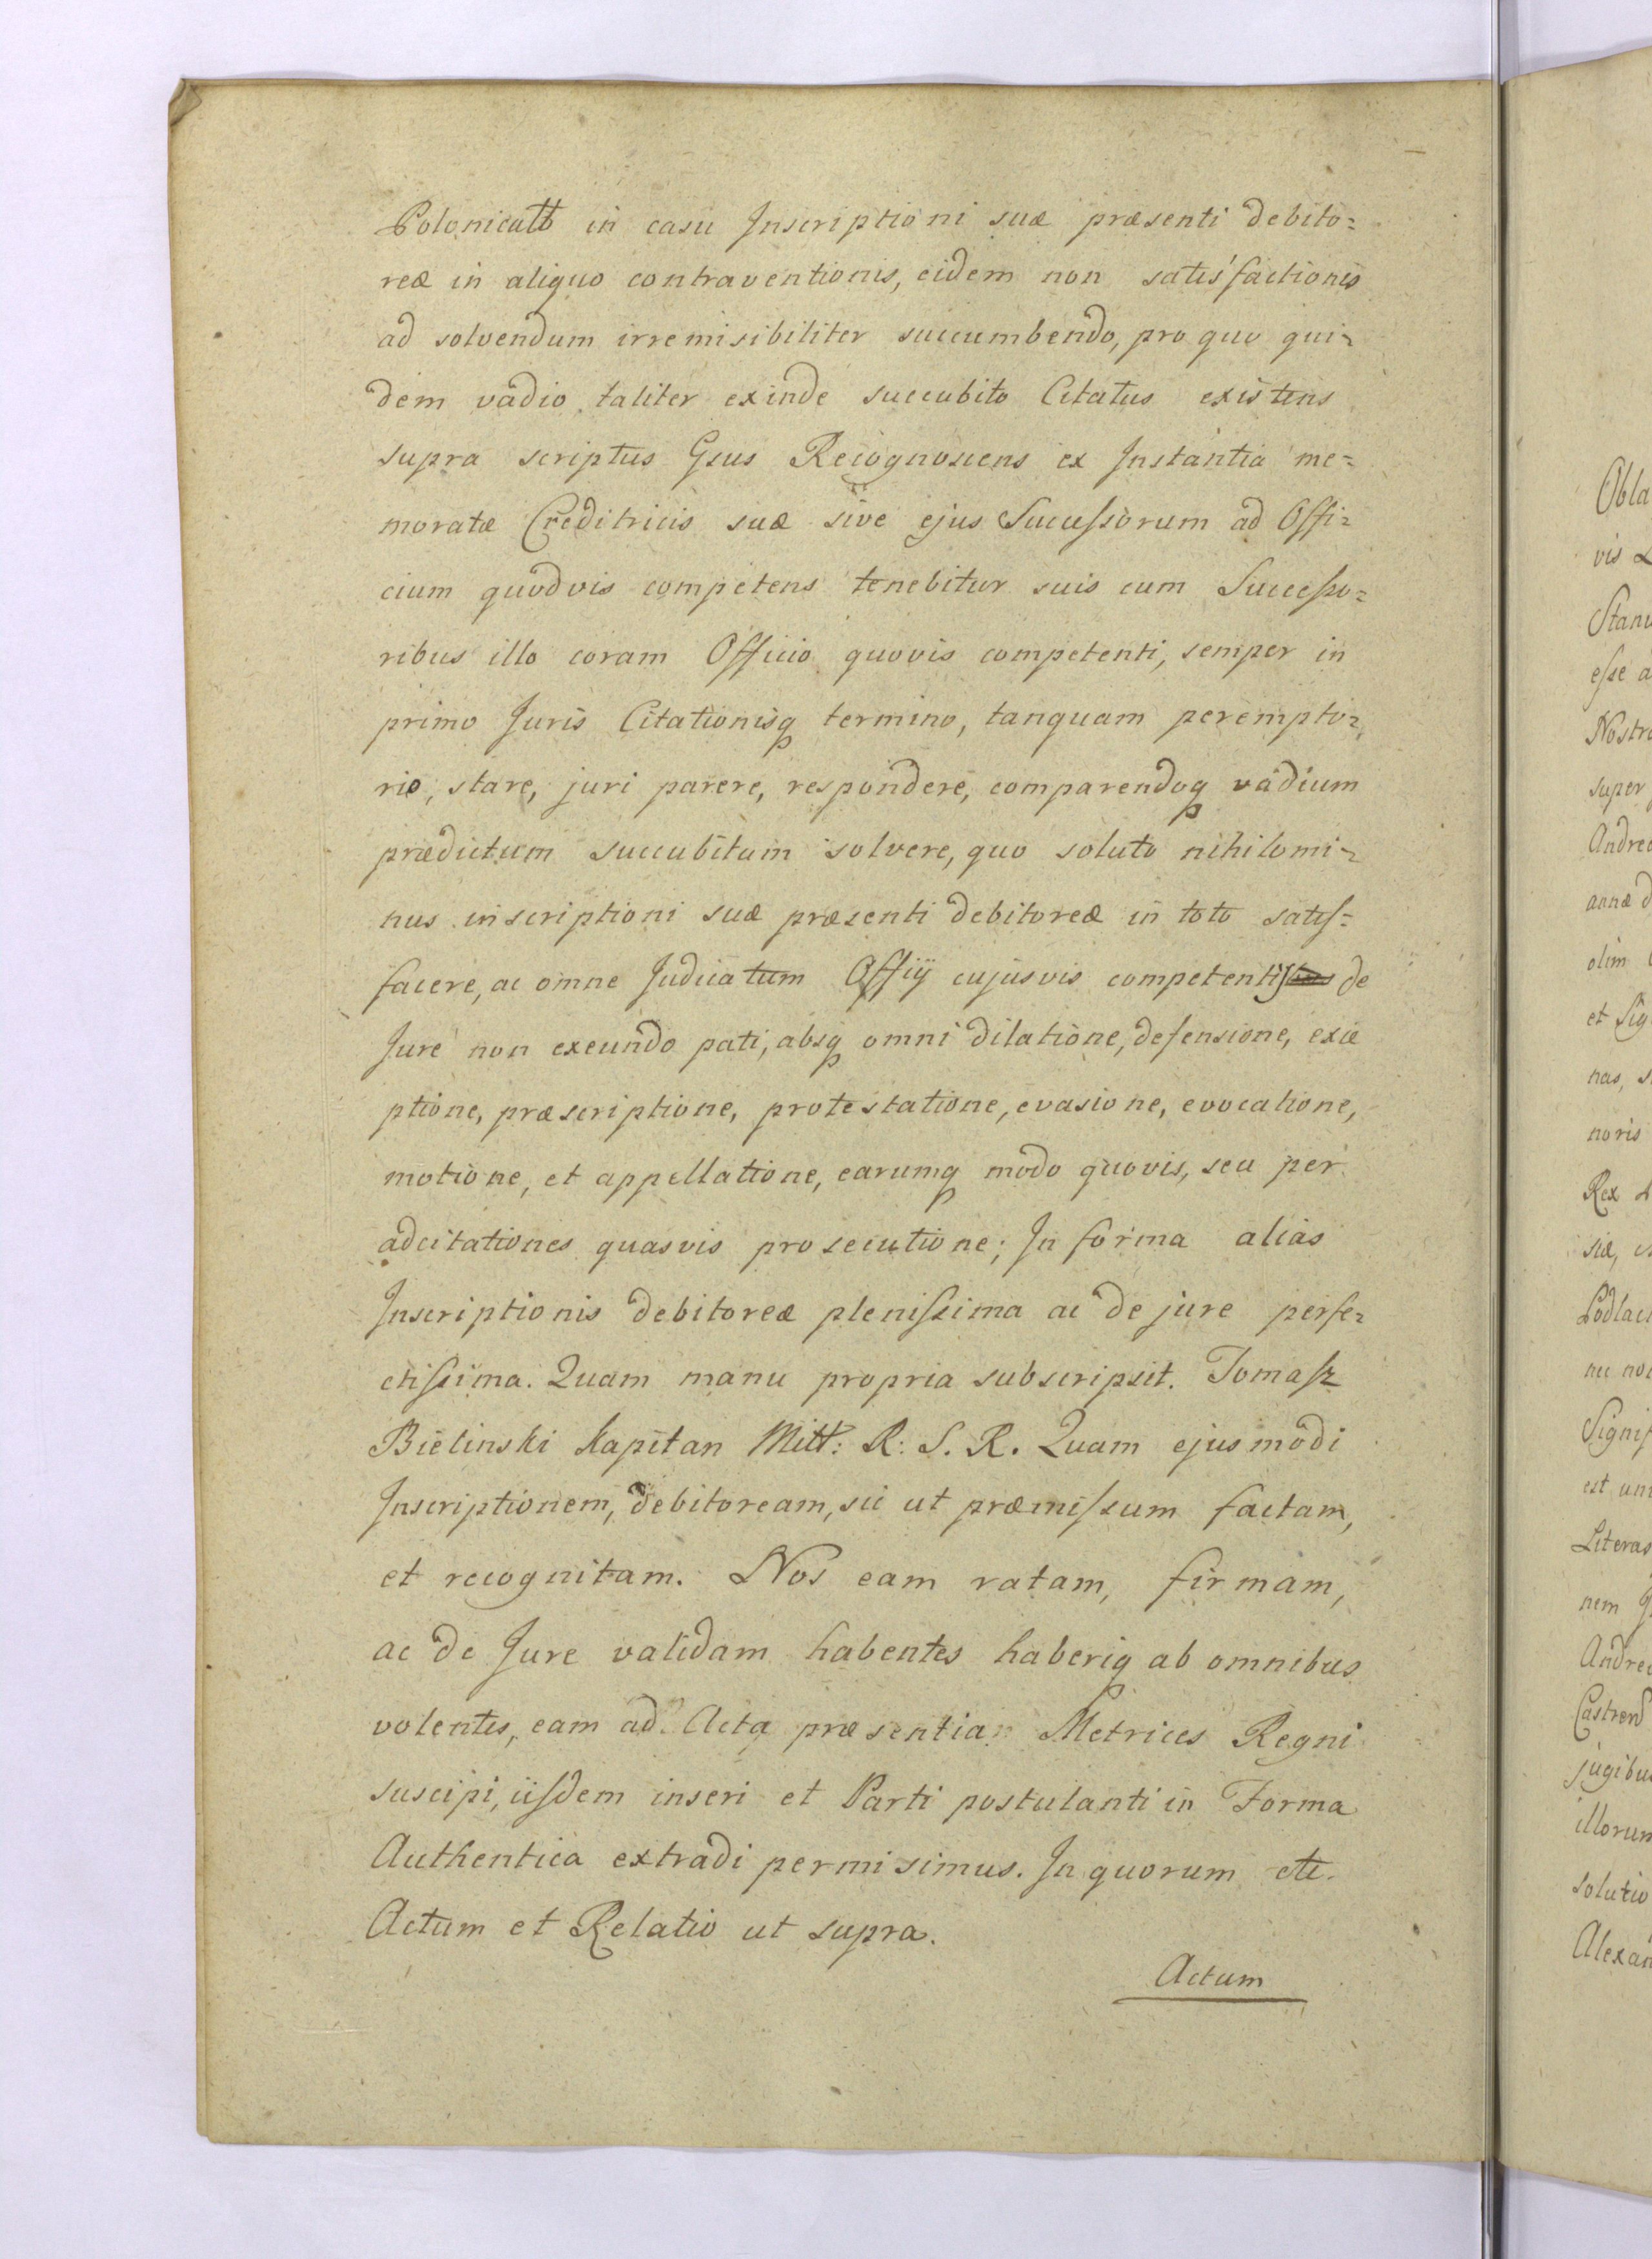 Polonicalb in casu Inscriptioni suæ præsenti debito=
reæ in aliquo contraventionis, eidem non satisfactionis
ad solvendum irremisibiliter succumbendo, pro quo qui=
dem vadio taliter exinde succubito Citatus existens
supra scriptus Gsus Recognoscens ex Instantia me=
moratæ Creditricis suæ sive ejus Sucuſsorum ad Offi=
cium quodvis competens tenebitur suis cum Succeſso=
ribus illo coram Officio quovis competenti, semper in
primo Juris Citationisq termino, tanquam perempto=
rio, stare, juri parere, respondere, comparendoq vadium
prædictum succubitum solvere, quo soluto nihilomi=
nus inscriptioni suæ præsenti debitoreæ in toto satiſ=
facere, ac omne Judicatum Offiÿ cujusvis competentis de
Jure non exeundo pati, absq omni dilatione, defensione, exce
ptione, præscriptione, protestatione, evasione, evocatione,
motione, et appellatione, earumq modo quovis, seu per
adcitationes quasvis prosecutione; In forma alias
Inscriptionis debitoreæ pleniſsima ac de jure perfe=
ctiſsima. Quam manu propria subscripsit. Tomaſz
Bielinski Kapitan Mitt: R: S. R. Quam ejusmodi
Inscriptionem, debitoream, sic ut præmiſsum factam,
et recognitam. Nos eam ratam, firmam,
ac de Jure validam habentes haberiq ab omnibus
volentes, eam ad Acta præsentia Metrices Regni
suscipi, iiſdem inseri et Parti postulanti in Forma
Authentica extradi permisimus. In quorum etc.
Actum et Relatio ut supra.
Actum
Obla
vis
Stani
eſse a
Nostra
super
Andrea
annæ d
olim
et Sig
nas, s
noris
Rex
siæ,
Podlac
nec non
Signif
est uni
Literas
nem
Andrea
Castren
jugibus
illorum
solutio
Alexan